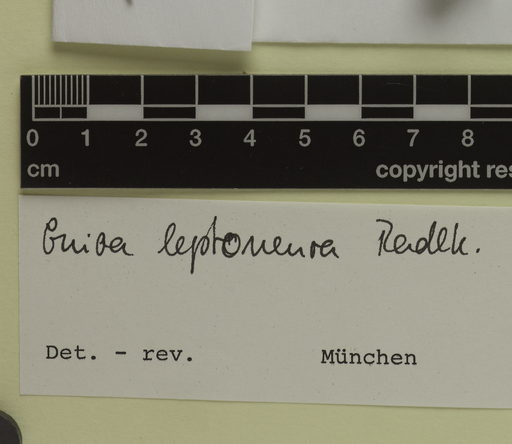 0 1 2 3 4 5 6 7 8
cm copyright res
leptoneura Radlk.
Det. - rev. München